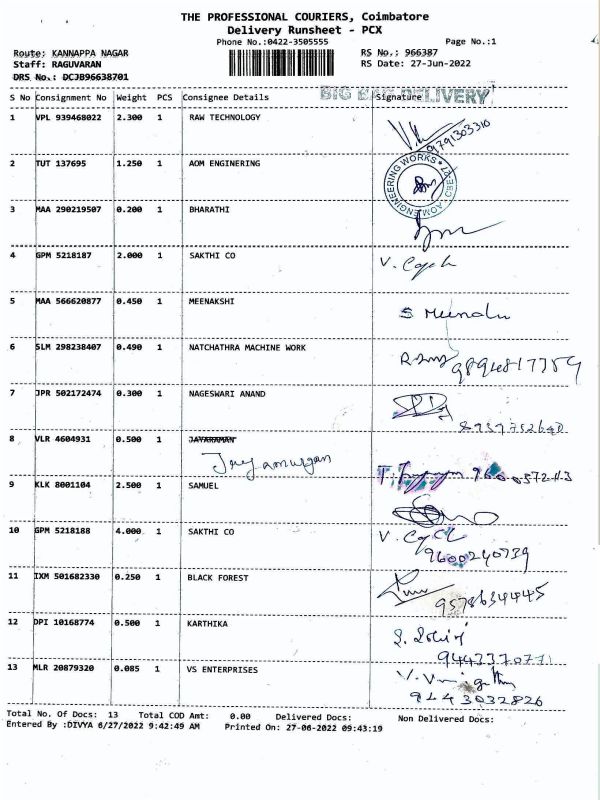 THE PROFESSIONAL COURIERS, Coimbatore
Delivery Runsheet - PCX
Phone No.:0422-3505555 Page No.:1
Route: KANNAPPA NAGAR RS No.: 966387
Staff: RAGUVARAN RS Date: 27-Jun-2022
DRS No.: DCJB96638701
BIG BAG DELIVERY
S No Consignment No Weight PCS Consignee Details Signature
1 VPL 939468022 2.300 1 RAW TECHNOLOGY
9791303310
2 TUT 137695 1.250 1 AOM ENGINERING
AOM ENGINEERING WORKS
3 MAA 290219507 0.200 1 BHARATHI
4 GPM 5218187 2.000 1 SAKTHI CO V.
5 MAA 566620877 0.450 1 MEENAKSHI
S
6 SLM 298238407 0.490 1 NATCHATHRA MACHINE WORK
9894817359
7 JPR 502172474 0.300 1 NAGESWARI ANAND
8 VLR 4604931 0.500 1 JAYARAMAN
Jayamurgan
9 KLK 8001104 2.500 1 SAMUEL
10 GPM 5218188 4.000 1 SAKTHI CO V.
9600240739
11 IXM 501682330 0.250 1 BLACK FOREST
9578634445
12 DPI 10168774 0.500 1 KARTHIKA
9442370771
13 MLR 20879320 0.085 1 VS ENTERPRISES
9443032826
Total No. Of Docs: 13 Total COD Amt: 0.00 Delivered Docs: Non Delivered Docs:
Entered By :DIVYA 6/27/2022 9:42:49 AM Printed On: 27-06-2022 09:43:19